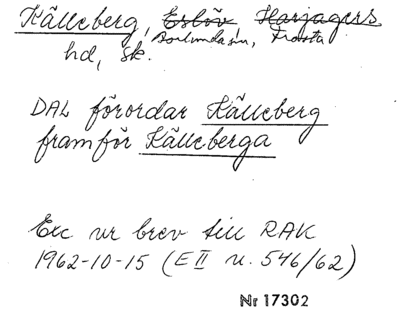 Källeberg, Eslöv Harjagers
Borlunda sn, Frosta
hd, Sk.
DAL förordar Källeberg
framför Källeberga
Exc ur brev till RAK
1962-10-15 (E II n. 546/62)
Nr 17302